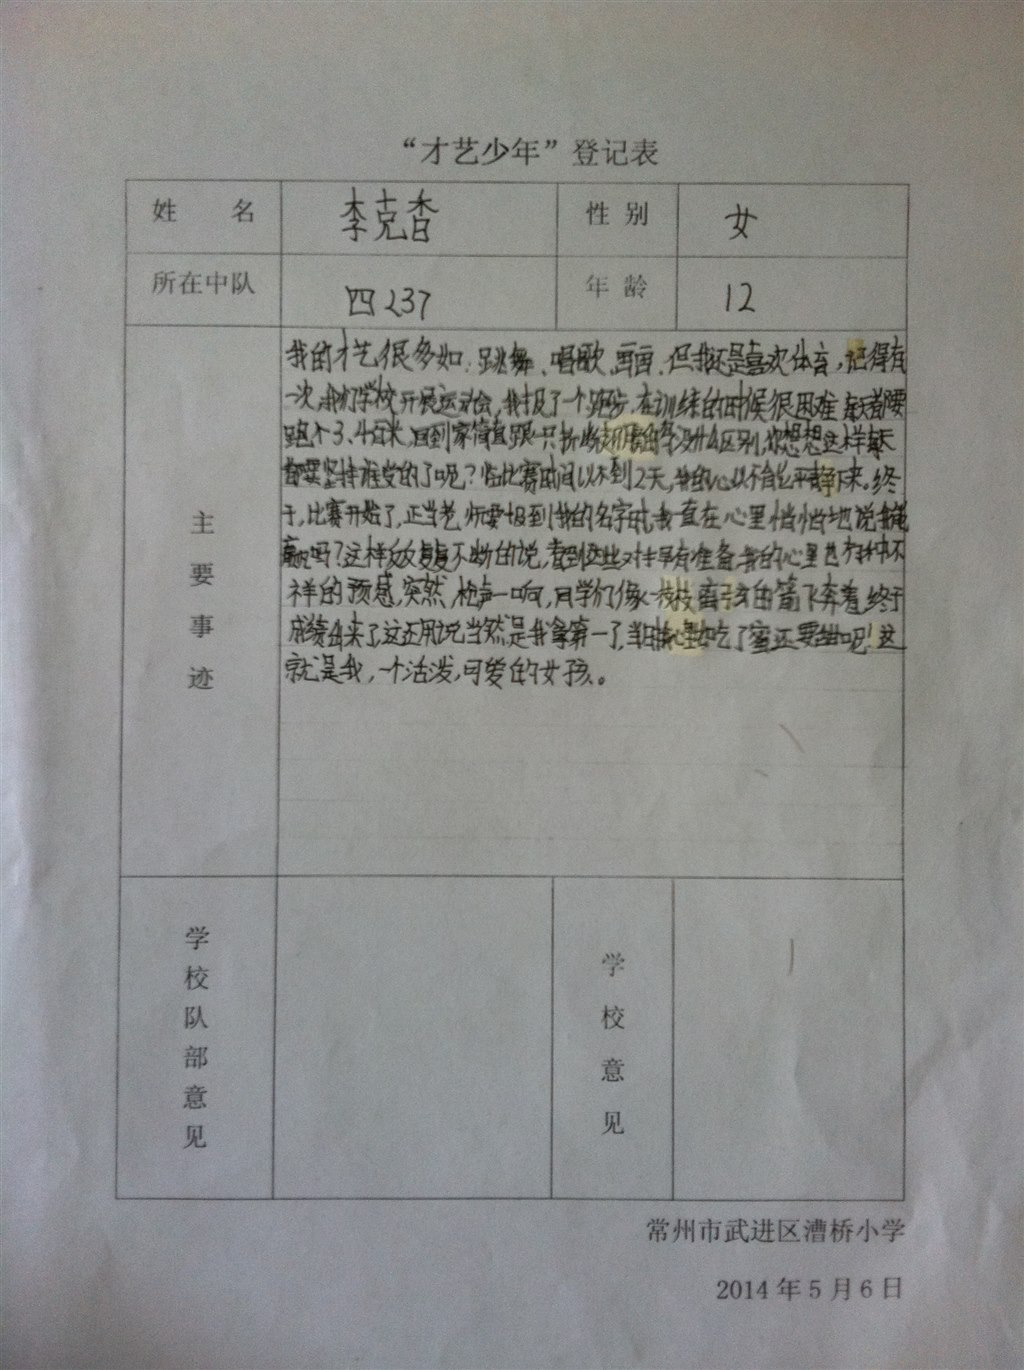 “才艺少年”登记表
姓 名 李克香 性 别 女
所在中队 四237 年 龄 12
主要事迹
我的才艺很多如:跳舞、唱歌、画画、但我还是喜欢体育,记得有
一次,我们学校开展运动会,我报了一个跑步,在训练的时候很困难,每天都要
跑个3、4百米,回到家简直跟一只折断翅膀的 没什么区别,你想想这样每天
都要坚持谁受的了呢?临比赛时间以不到2天,我的心以不能平静下来。终
于,比赛开始了,正当老师要报到我的名字时,我一直在心里悄悄地说我能
赢吗?这样反反复复不断的说,看到这些对手早有准备,我的心里也有种不
祥的预感,突然,枪声一响,同学们像一枝枝离弦的箭飞奔着,终于
成绩出来了,这还用说当然是我拿第一了, 心里如吃了蜜还要甜呢!这
就是我,一个活泼,可爱的女孩。
学校队部意见
学校意见
常州市武进区漕桥小学
2014年5月6日